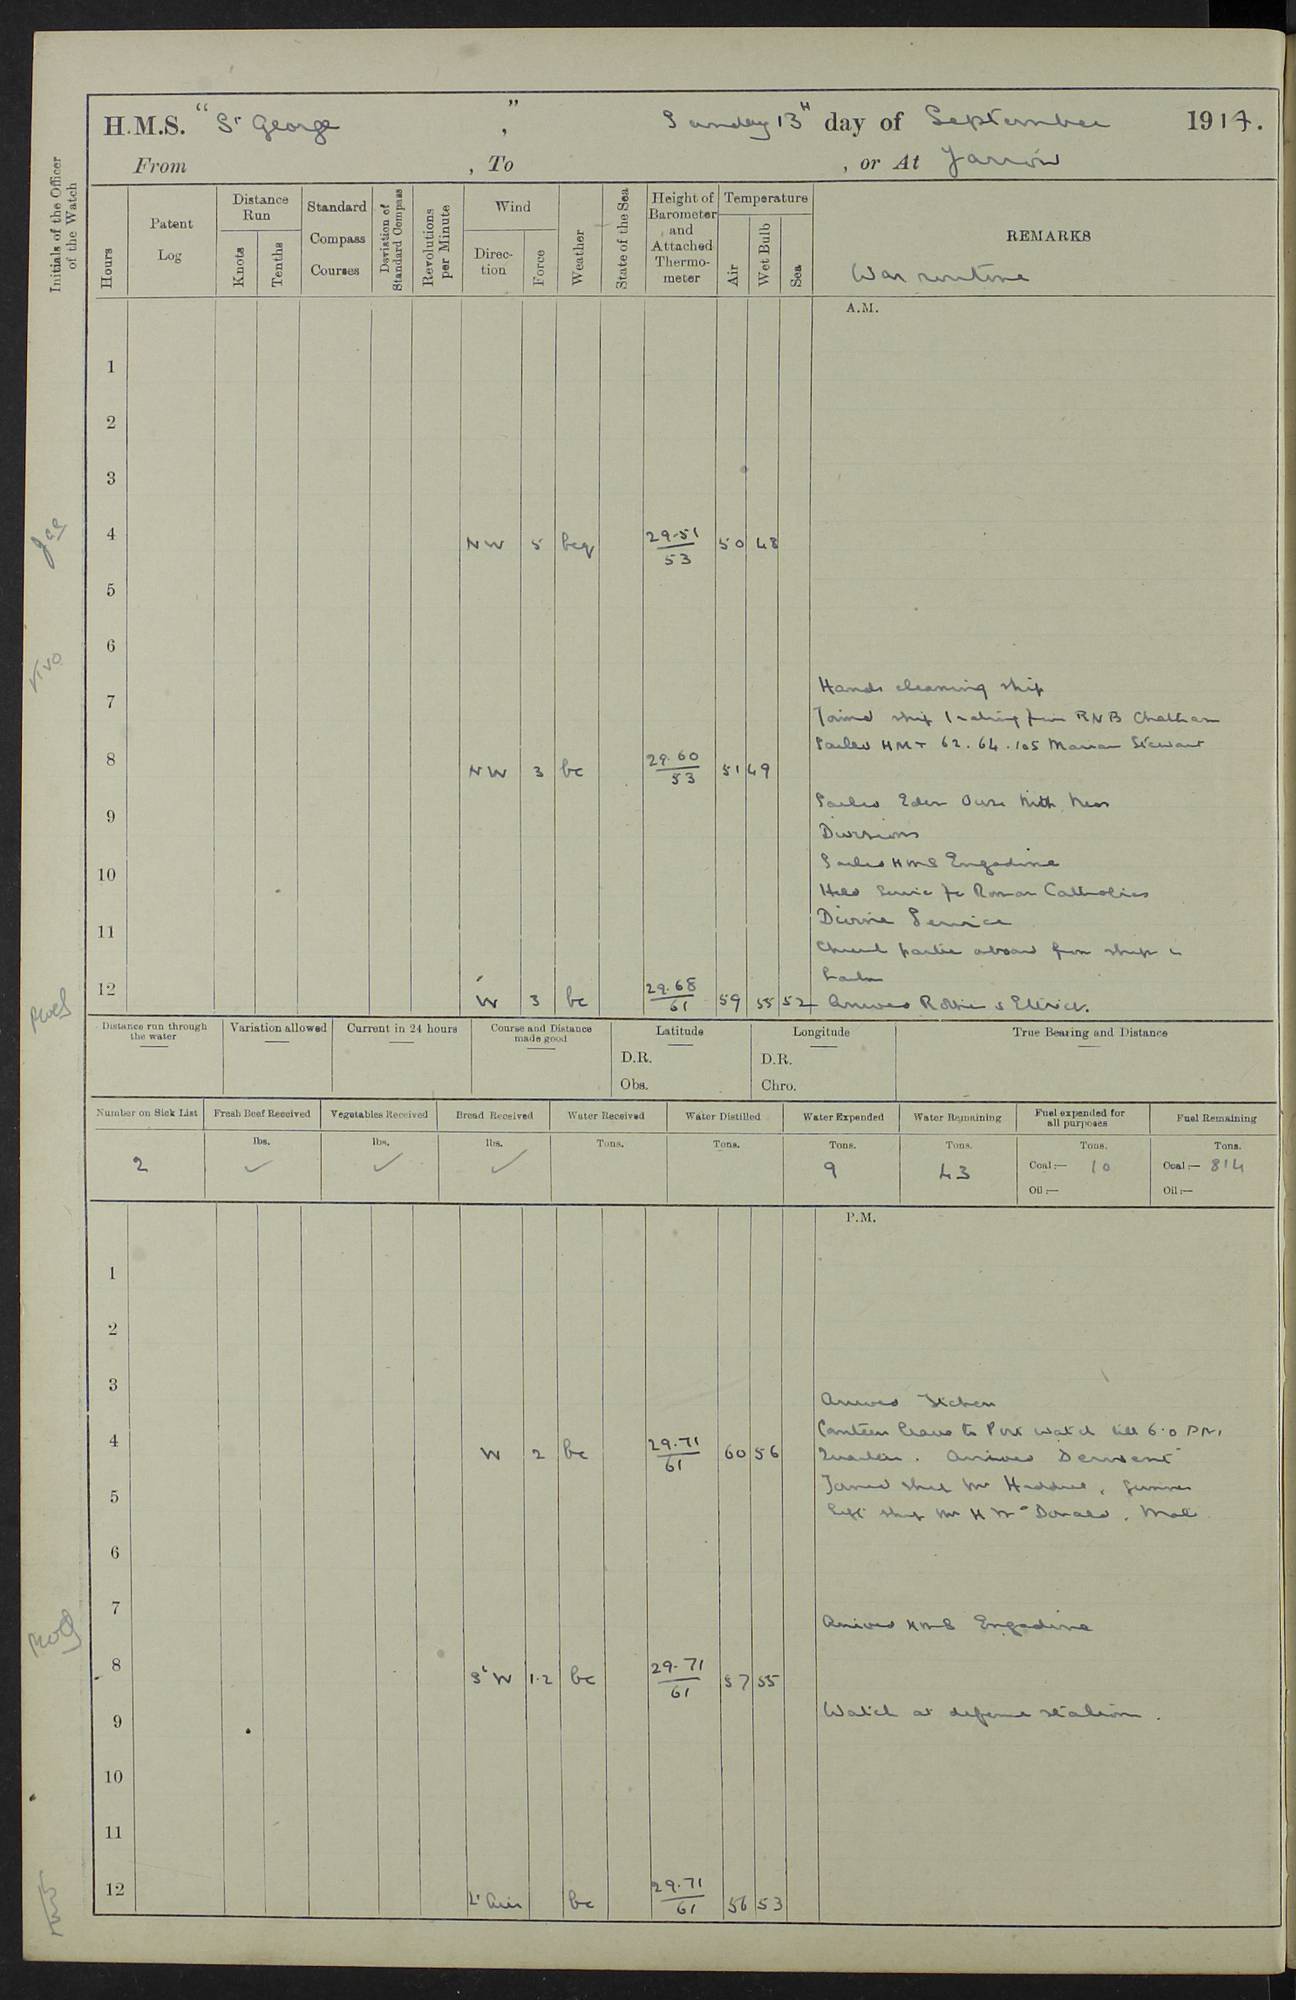 H.M.S. "St George", Sunday 13th day of September 1914.
From , To , or At Jarrow
Initials of the Officer of the Watch
Hours
Patent Log
Distance Run
Knots
Tenths
Standard Compass Courses
Deviation of Standard Compass
Revolutions per Minute
Wind
Direction
Force
Weather
State of the Sea
Height of Barometer and Attached Thermometer
Temperature
Air
Wet Bulb
Sea
REMARKS
War routine
A.M.
1
2
3
4 NW 5 bcq 29.51 53 50 48
5
6
Hands cleaning ship
7
Joined ship 1 rating from RNB Chatham
Sailed HMT 62. 64. 105 Marian Stewart
8 NW 3 bc 29.60 53 51 49
Sailed Eden Ouse Nith Ness
9
Divisions
Sailed HMS Engadine
10
Held Service for Roman Catholics
Divine Service
11
Church parties aboard from ships in
12 W 3 bc 29.68 61 59 55 52 Arrived Rother & Ettrick.
Distance run through the water
Variation allowed
Current in 24 hours
Course and Distance made good
Latitude
D.R.
Obs.
Longitude
D.R.
Chro.
True Bearing and Distance
Number on Sick List
Fresh Beef Received
Vegetables Received
Bread Received
Water Received
Water Distilled
Water Expended
Water Remaining
Fuel expended for all purposes
Fuel Remaining
lbs. lbs. lbs. Tons. Tons. Tons. Tons. Tons. Tons.
2 ✓ ✓ ✓ 9 43 Coal :— 10 Coal :— 814
Oil :— Oil :—
P.M.
1
2
3
Arrived Itchen
Canteen leave to Port watch till 6.0 PM
4 W 2 bc 29.71 61 60 56 Quarters. Arrived Derwent
Joined ship Mr Haddrel, Gunner
5
Left ship Mr H McDonald. Mate
6
7
Arrived HMS Engadine
8 St W 1.2 bc 29.71 61 57 55
Watch at defence stations.
9
10
11
12 Lt Airs bc 29.71 61 56 53